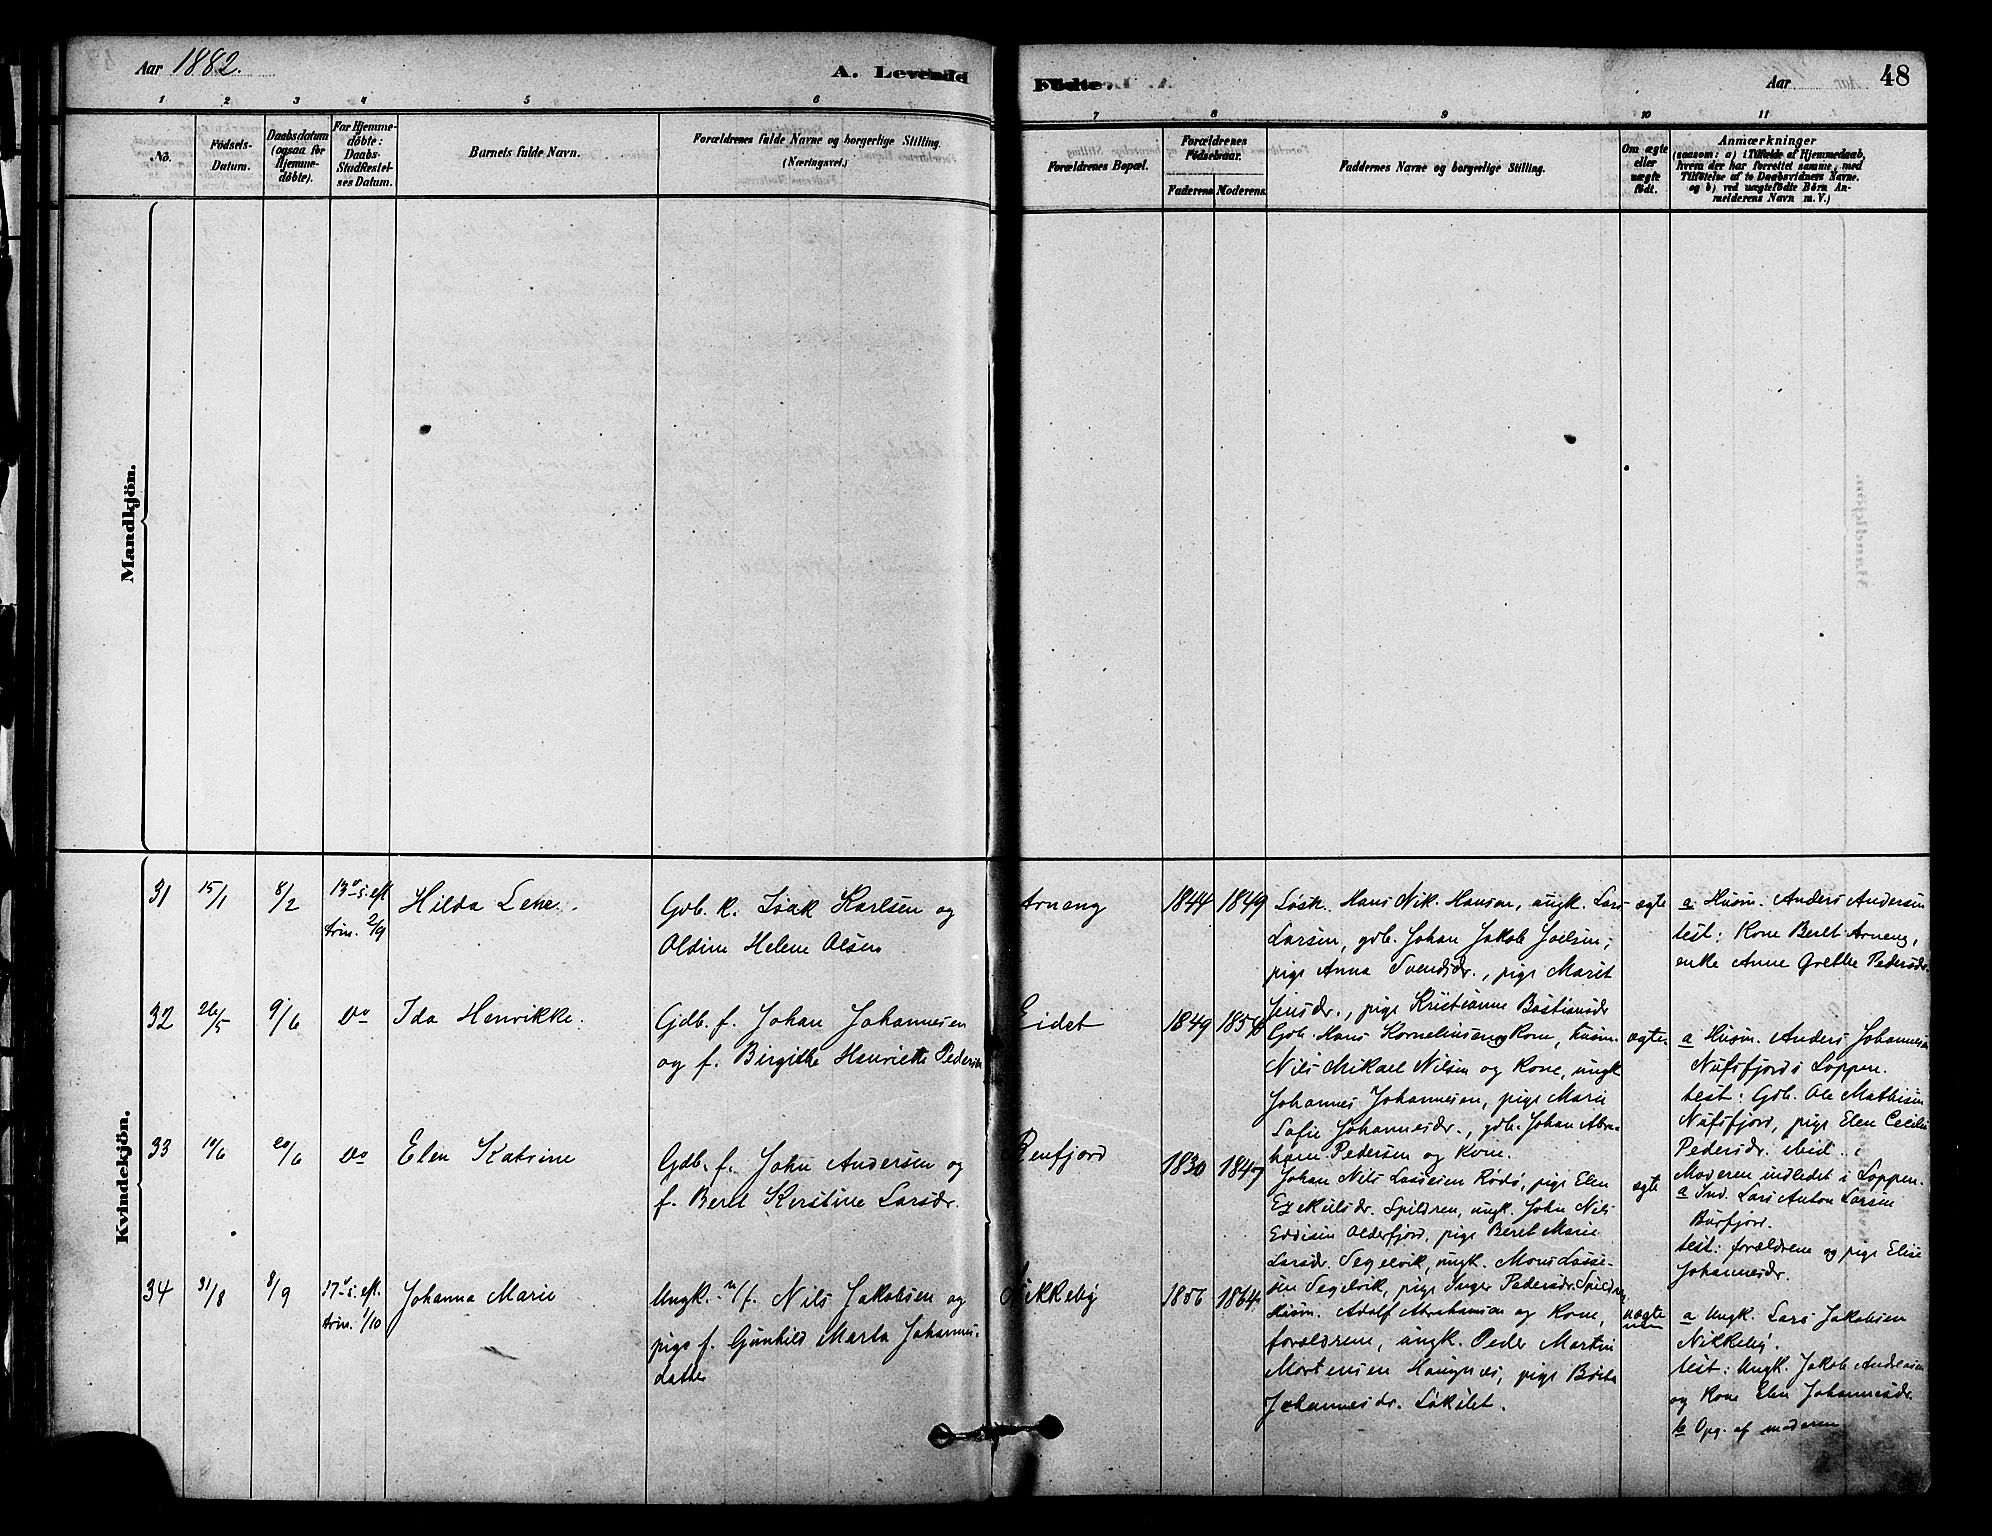 Aar 1882.
A. Levende
Födte.
Aar
48
1 2 3 4 5 6
7 8 9 10 11
No.
Födsels-
Datum.
Daabsdatum
(ogsaa for
Hjemme-
döbte).
For Hjemme-
döbte:
Daabs-
Stadfæstel-
ses Datum.
Barnets fulde Navn.
Forældrenes fulde Navne og borgerlige Stilling.
(Næringsvei.)
Forældrenes Bopæl.
Forældrenes
Födselsaar.
Faderens. Moderens.
Faddernes Navne og borgerlige Stilling.
Om ægte
eller
uægte
födt.
Anmærkninger
(saasom: a) i Tilfælde af Hjemmedaab,
hvem der har forrettet samme, med
Tilföielse af to Daabsvidners Navne.
og b) ved uægtefödte Börn An-
melderens Navn m. V.)
Mandkjön.
Kvindekjön.
31
15/1
8/2
13de s. eft
trin. 2/9
Hilda Lene.
Gdb. k. Isak Karlsen og
Oldine Helene Olsen
Arnæng
1844
1849
Løsk. Hans Nik. Hansen, ungk. Lars
Larsen, gdb. Johan Jakob Joelsen,
pige Anna Svendsdr., pige Marit
Jensdr., pige Kristianne Bastiansdr
ægte
a Husm. Anders Andersen
test: Kone Beret Arneng,
enke Anne Grethe Pedersdr.
32
26/5
9/6
Do
Ida Henrikke.
Gdb. f. Johan Johannesen
og f. Birgithe Henriette Pedersen
Eidet
1849
Gdb. Hans Korneliusen og Kone, husm.
Nils Mikael Nilsen og Kone, ungk
Johannes Johannesen, pige Marie
Sofie Johannesdr., gdb. Johan Abra-
ham Pedersen og Kone.
ægte
a Husm. Anders Johannesen
Nufsfjord i Loppen.
test: Gdb. Ole Mathisen
Nufsfjord, pige Elen Cecilie
Pedersdr. ibid.
Moderen indledet i Loppen.
33
10/6
20/6
Do
Elen Katrine
Gdb. f. John Andersen og
f. Beret Kirstine Larsdr.
Renfjord
1830
1847
Johan Nils Lassesen Rødø, pige Elen
Ezekielsdr. Spildren, ungk. John Nils
Eddisen Olderfjord, pige Beret Marie
Larsdr. Segelvik, ungk. Mons Lasse-
sen Segelvik, pige Inger Pedersdr. Spildren
ægte
a Ind. Lars Anton Larsen
Burfjord.
test: forældrene og pige Elise
Johannesdr.
34
31/8
8/9
17de s. eft.
trin. 1/10
Johanna Marie
Ungk. n/f. Nils Jakobsen og
pige f. Gunhild Marta Johannes-
datter
Nikkeby
1856
1864
Husm. Adolf Abrahamsen og Kone,
forældrene, ungk. Peder Martin
Mortensen Haugnæs, pige Berta
Johannesdr. Løkslet.
uægte
a Ungk. Lars Jakobsen
Nikkeby.
test: Ungk. Jakob Andreasen
og Kone Elen Johannesdr.
b Opg. af moderen